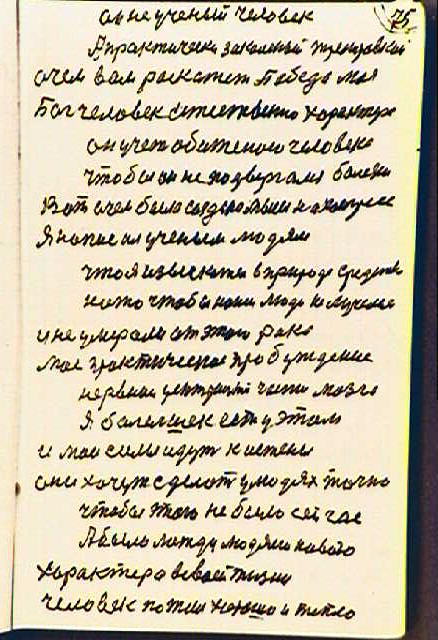 75
он не ученый человек
А практически закалный тренировкой
о чем вам роскажет Победа моя
Бог человек естественно характера
он учет обиженого человека
чтобы он не подвергался болезни
Вот о чем было
Я написал ученым людям
что я изыскател в природе средств
на то чтобы наши люди не мучелися
и не умирали от этого рака
мое практическое пробуждение
нервной центральной части мозга
Я болельшек есть у этом
и мои силы идут к истене
они хочут сделоть у людях точно
чтобы этого не было сейчас
А было между людями нового
характера в своей жизни
человек пожил хорошо и тепло